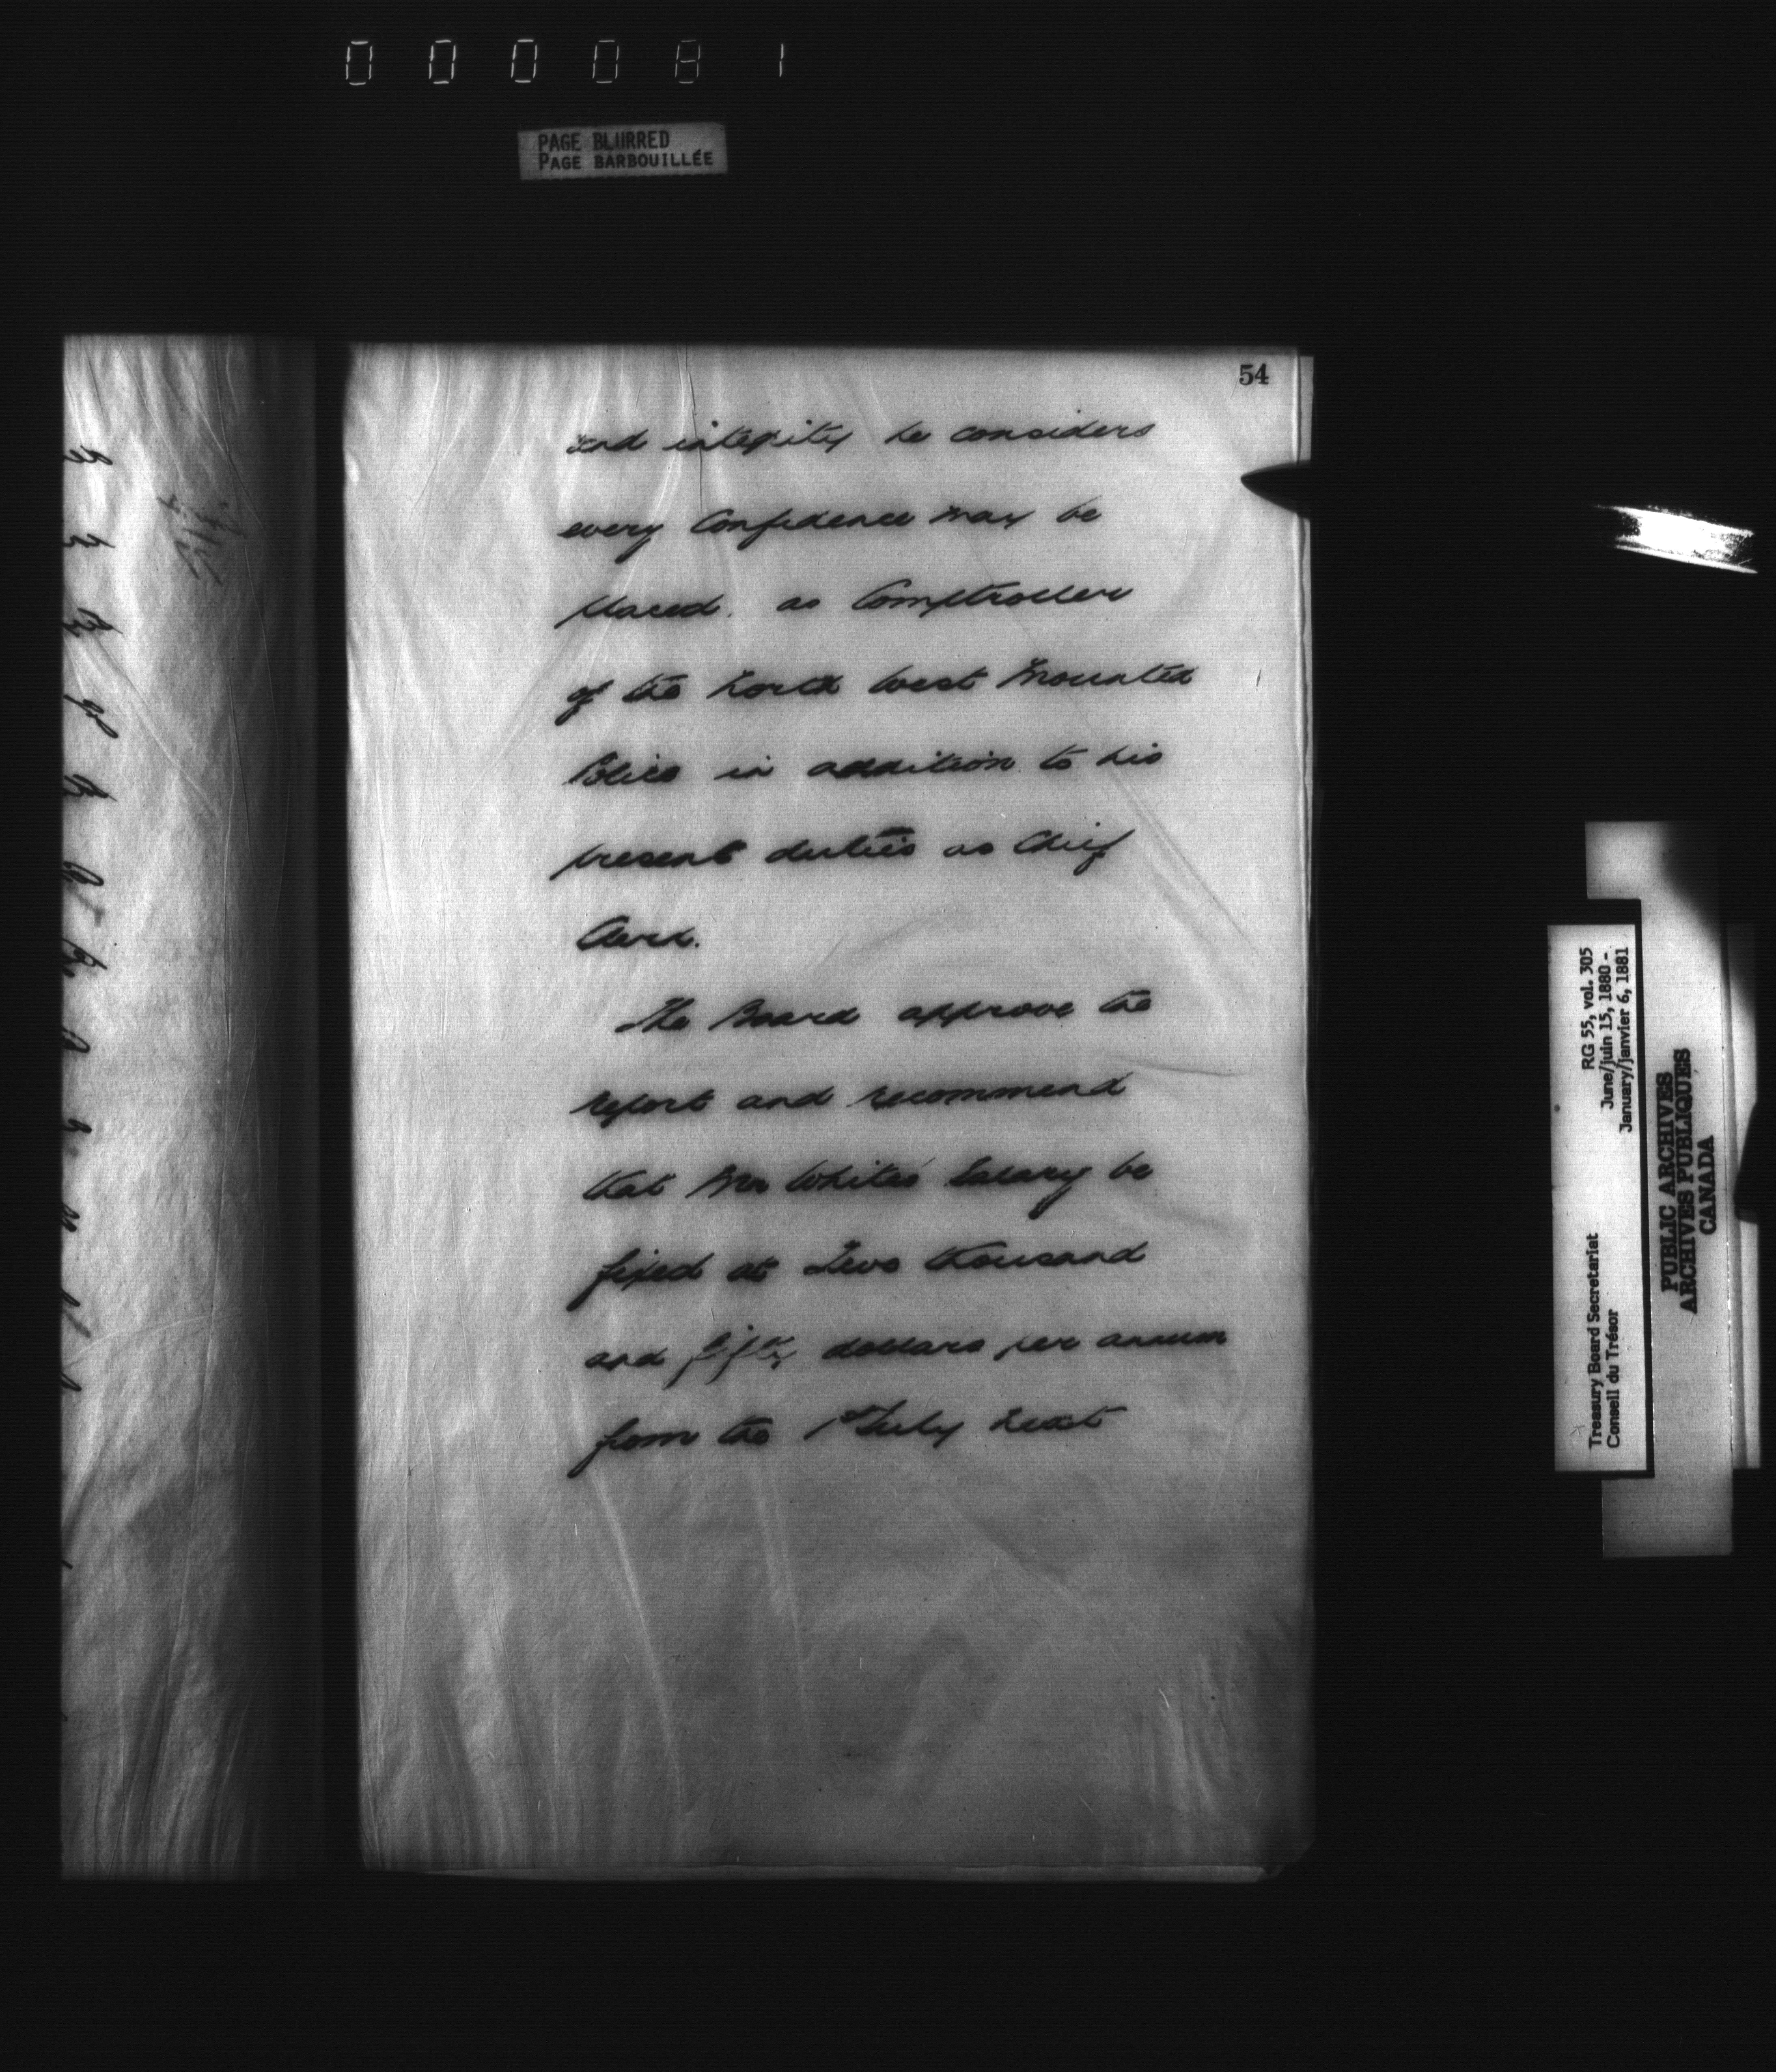 000081
PAGE BLURRED
PAGE BARBOUILLÉE
54
and integrity he considers
every Confidence may be
placed, as Comptroller
of the North West Mounted
Police in addition to his
present duties as Chief
Clerk.
The Board approve the
report and recommend
that Mr White's Salary be
fixed at Two thousand
and fifty dollars per annum
from the 1st July next
RG 55, vol. 305
June/juin 15, 1880 -
January/janvier 6, 1881
Treasury Board Secretariat
Conseil du Trésor
PUBLIC ARCHIVES
ARCHIVES PUBLIQUES
CANADA